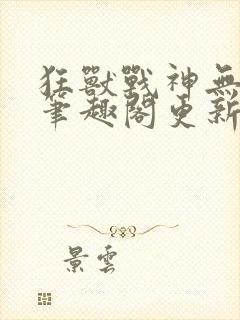 狂獸戰神無
筆趣閣更新
景雲